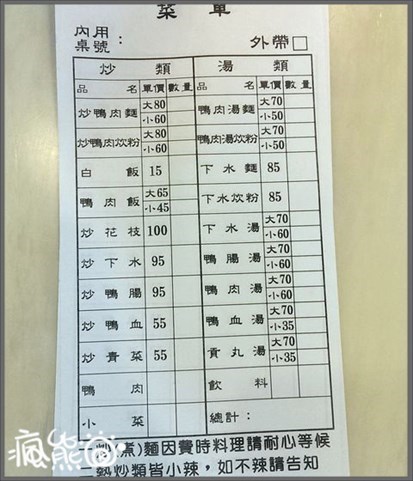 菜單
內用
桌號：
外帶□
炒類 湯類
品名 單價 數量 品名 單價 數量
炒鴨肉麵 大80 小60 鴨肉湯麵 大70 小50
炒鴨肉炊粉 大80 小60 鴨肉湯炊粉 大70 小50
白飯 15 下水麵 85
鴨肉飯 大65 小45 下水炊粉 85
炒花枝 100 下水湯 大70 小60
炒下水 95 鴨腸湯 大70 小60
炒鴨腸 95 鴨肉湯 大70 小60
炒鴨血 55 鴨血湯 大70 小35
炒青菜 55 貢丸湯 大70 小35
鴨肉 飲料
小菜 總計：
煮)麵因費時料理請耐心等候
二熱炒類皆小辣，如不辣請告知
瘋熊